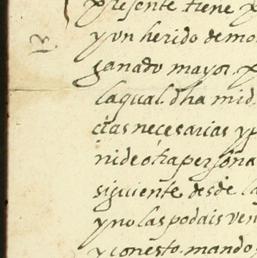 presente tiene p
y vn herido de mo
ganado mayor. p
la qual. dha mid
cias necesarias y p
ni de otra persona
siguiente desde la
y no las podais ven
y con esto. mando